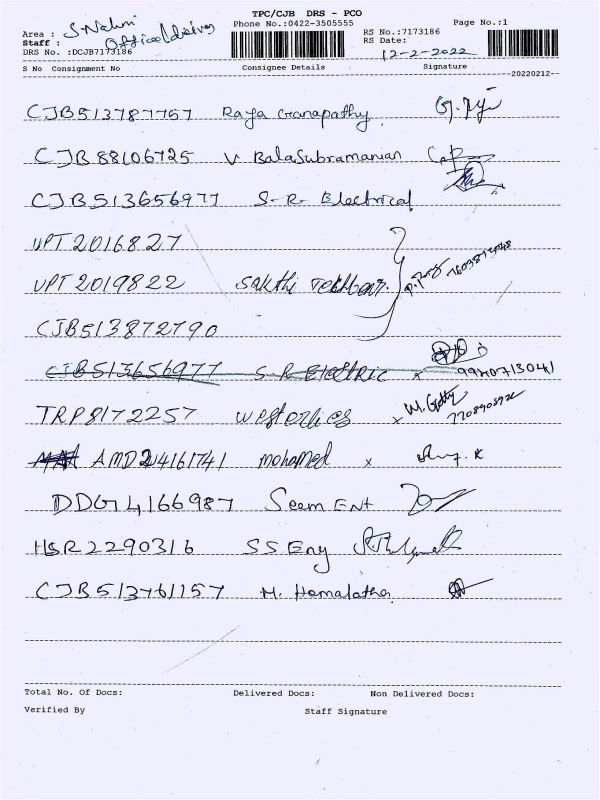 TPC/CJB DRS - PCO
Area : S. Nehru Phone No.:0422-3505555 Page No.:1
Staff : Office RS No.:7173186
DRS No. :DCJB7173186 RS Date: 12-2-2022
S No Consignment No Consignee Details Signature
20220212
CJB513787767 Raja Ganapathy
CJB88106725 V BalaSubramanian
CJB513656977 S-R- Electrical
UPT2016827
UPT2019822 Sakthi
CJB513872790
CJB513656977 S R Electric x
TRP8172257 Westerlies x
AMD24161741 mohamed x
DDG14166987 Seem Ent
HSR2290316 SS Eng
CJB513761157 M. Hemalatha
Total No. Of Docs: Delivered Docs: Non Delivered Docs:
Verified By Staff Signature